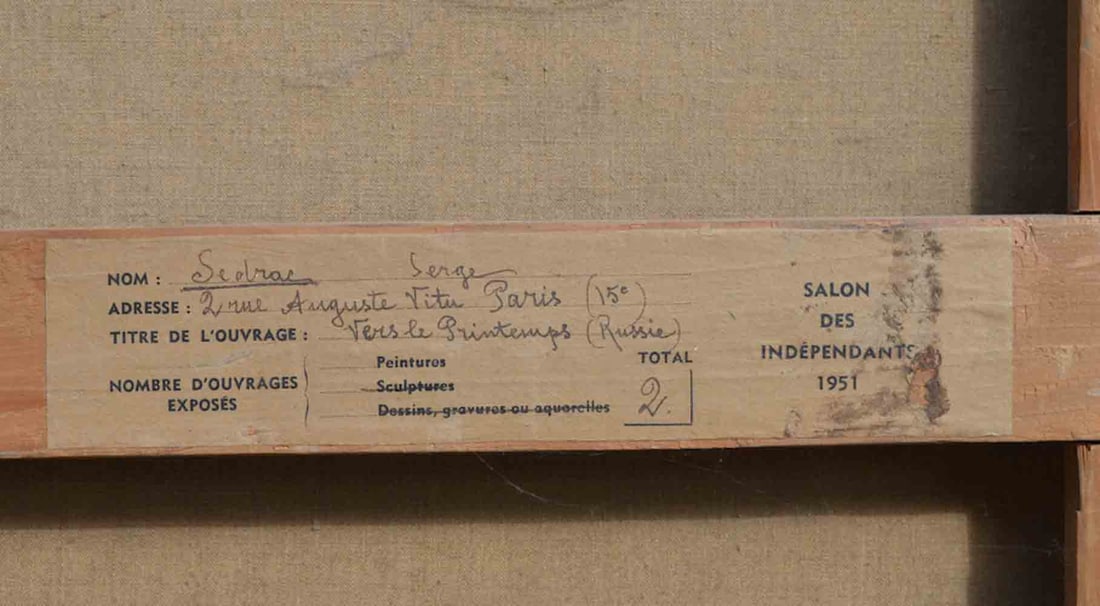 NOM : Sedrac Serge
ADRESSE : 2 rue Auguste Vitu Paris (15e)
TITRE DE L'OUVRAGE : Vers le Printemps (Russie)
NOMBRE D'OUVRAGES
EXPOSÉS
Peintures
Sculptures
Dessins, gravures ou aquarelles
TOTAL
2.
SALON
DES
INDÉPENDANTS
1951